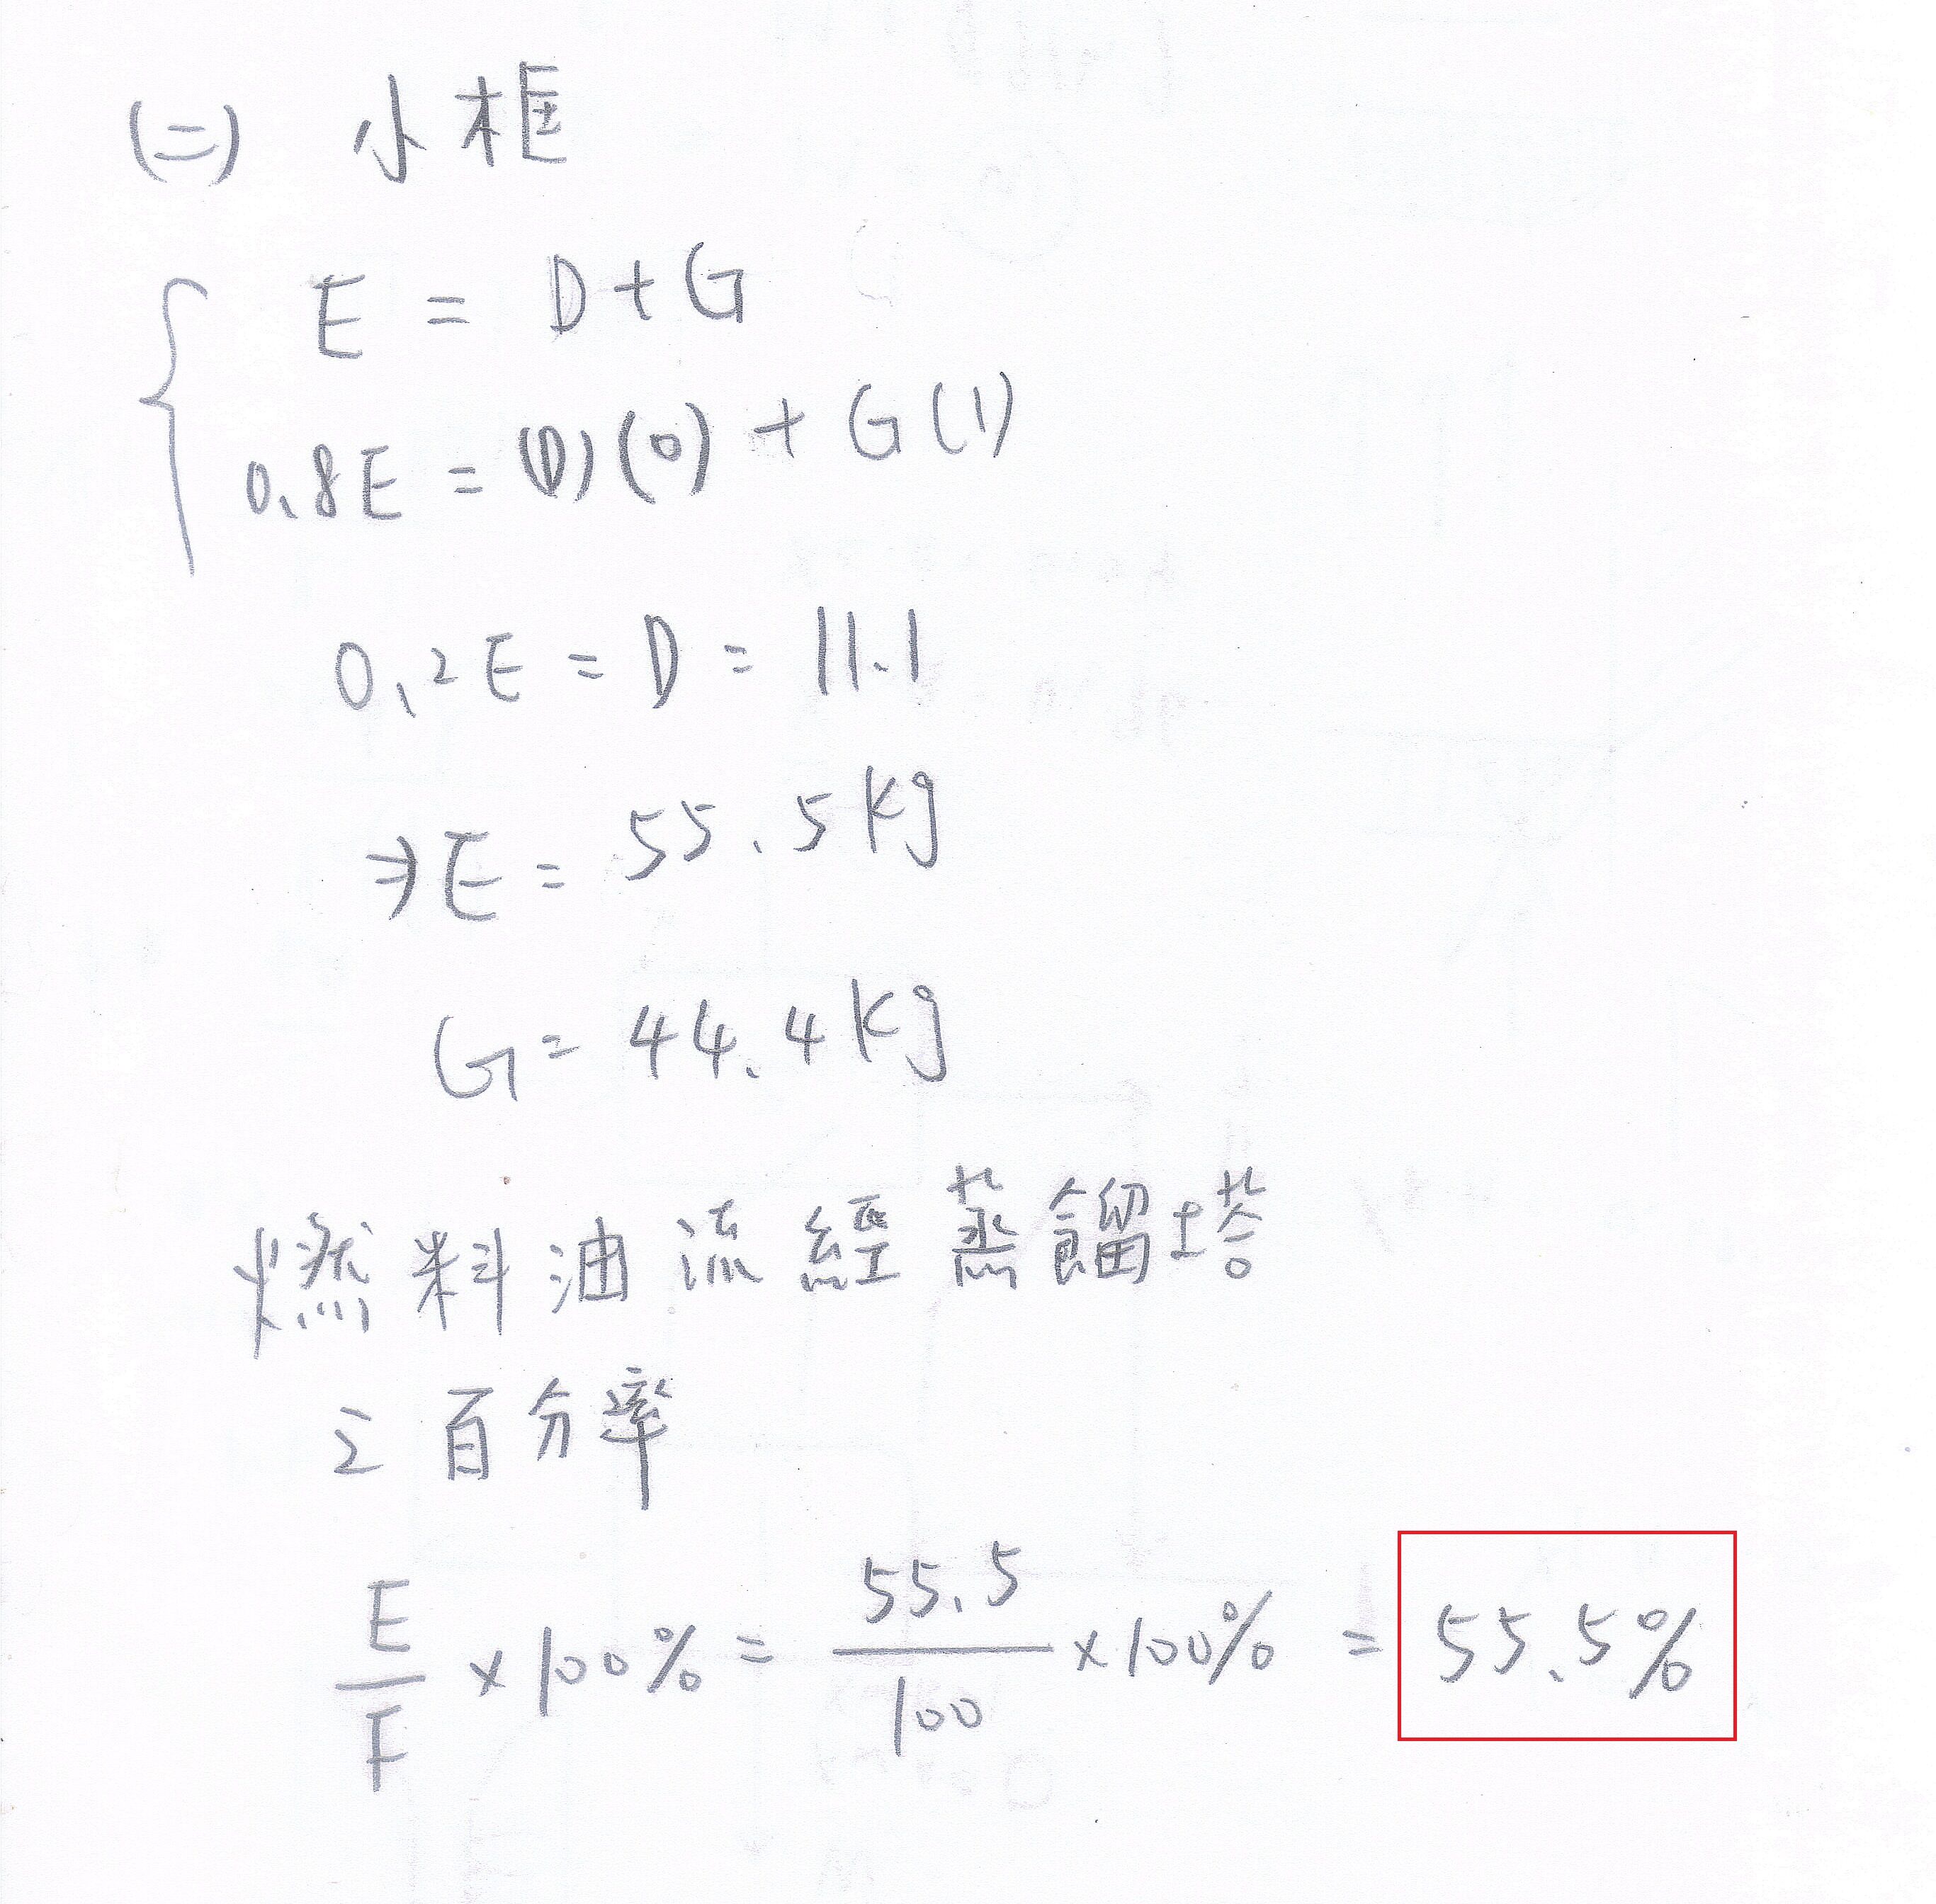 (二) 小框
E = D + G
0.8E = (D)(0) + G(1)
0.2E = D = 11.1
⇒E = 55.5kg
G = 44.4kg
燃料油流經蒸餾塔
之百分率
E/F × 100% = 55.5/100 × 100% = 55.5%